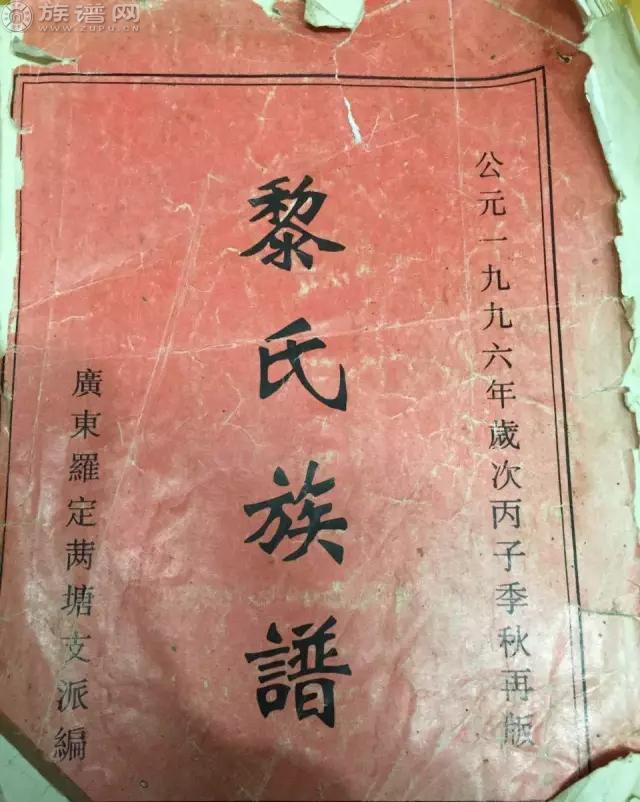 公元一九九六年歲次丙子季秋再版
黎氏族譜
廣東羅定蒳塘支派編
族谱网
WWW.ZUPU.CN